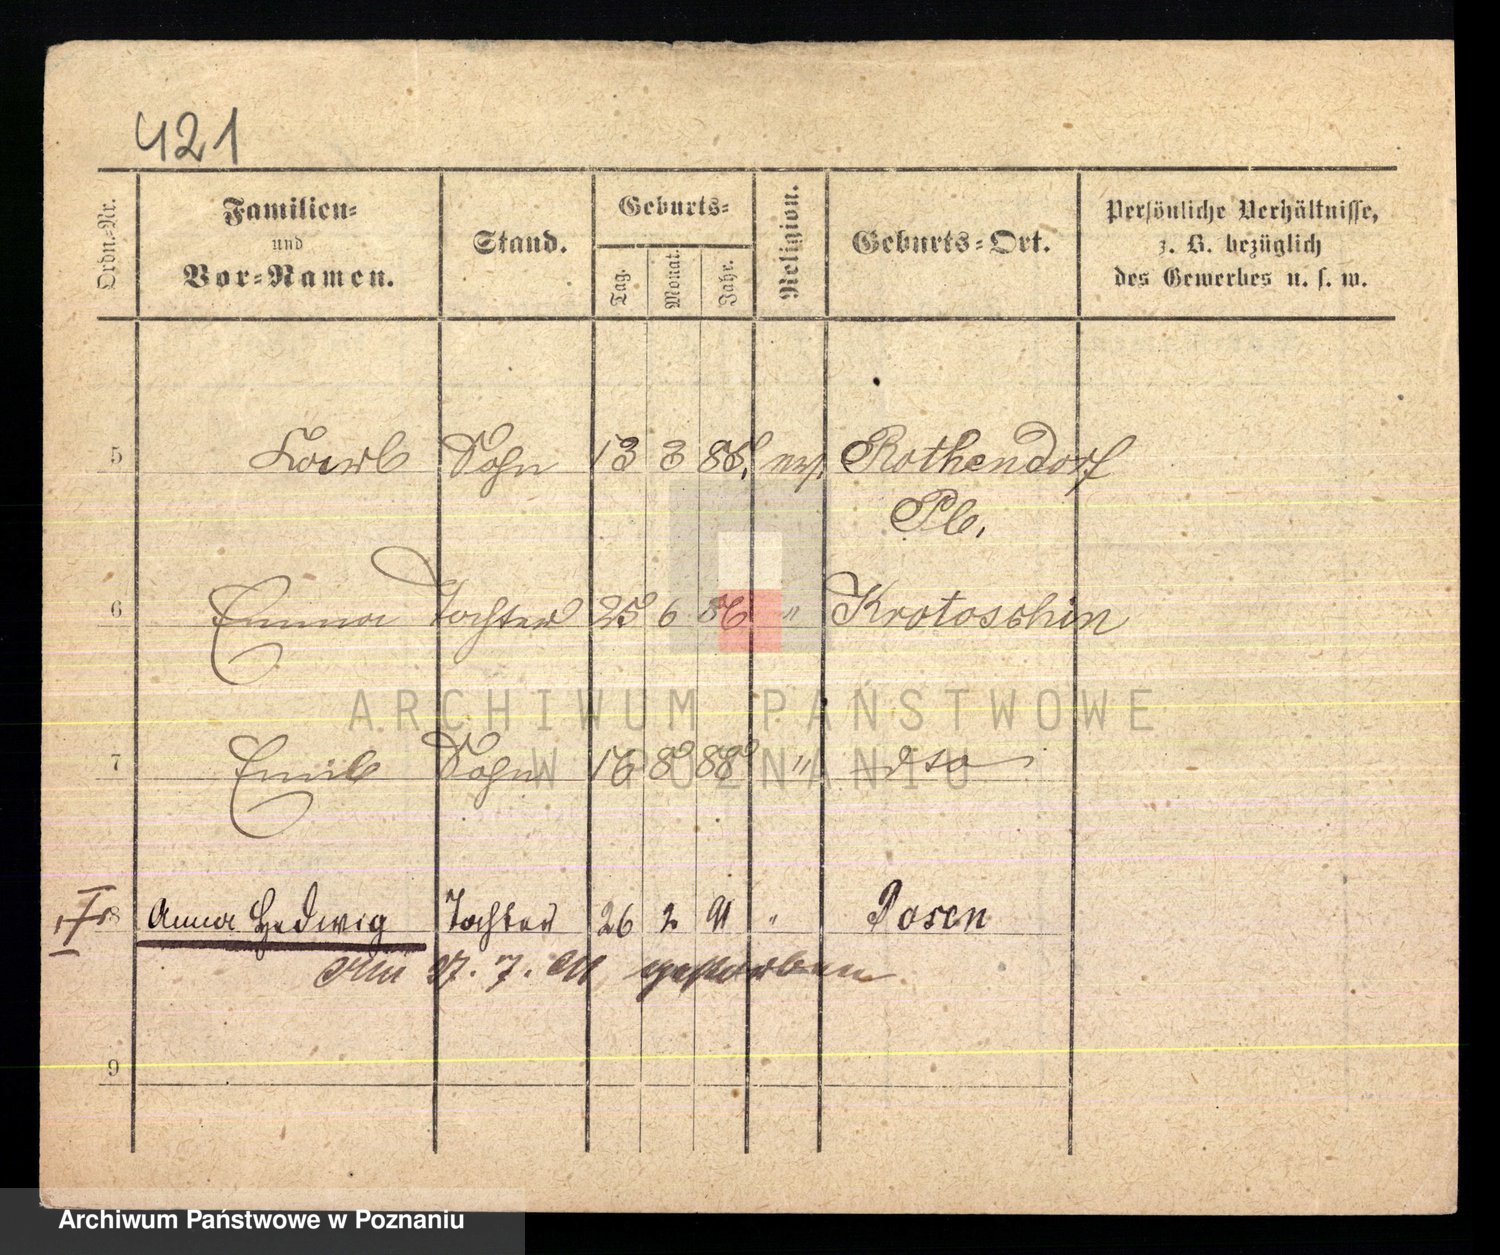 421
Ordn.-Nr. Familien- und Vor-Namen. Stand. Geburts- Tag. Monat. Jahr. Religion. Geburts-Ort. Persönliche Verhältnisse, z. B. bezüglich des Gewerbes u. s. w.
5 Karl Sohn 13 3 85. ev. Rothendorf
Pb.
6 Emma Tochter 25 6 86 " Krotoschin
ARCHIWUM PAŃSTWOWE
W POZNANIU
7 Emil Sohn 16 8 88 " dto
8 Anna Hedwig Tochter 26 2 91 " Posen
27. 7. 91 gestorben
9
Archiwum Państwowe w Poznaniu